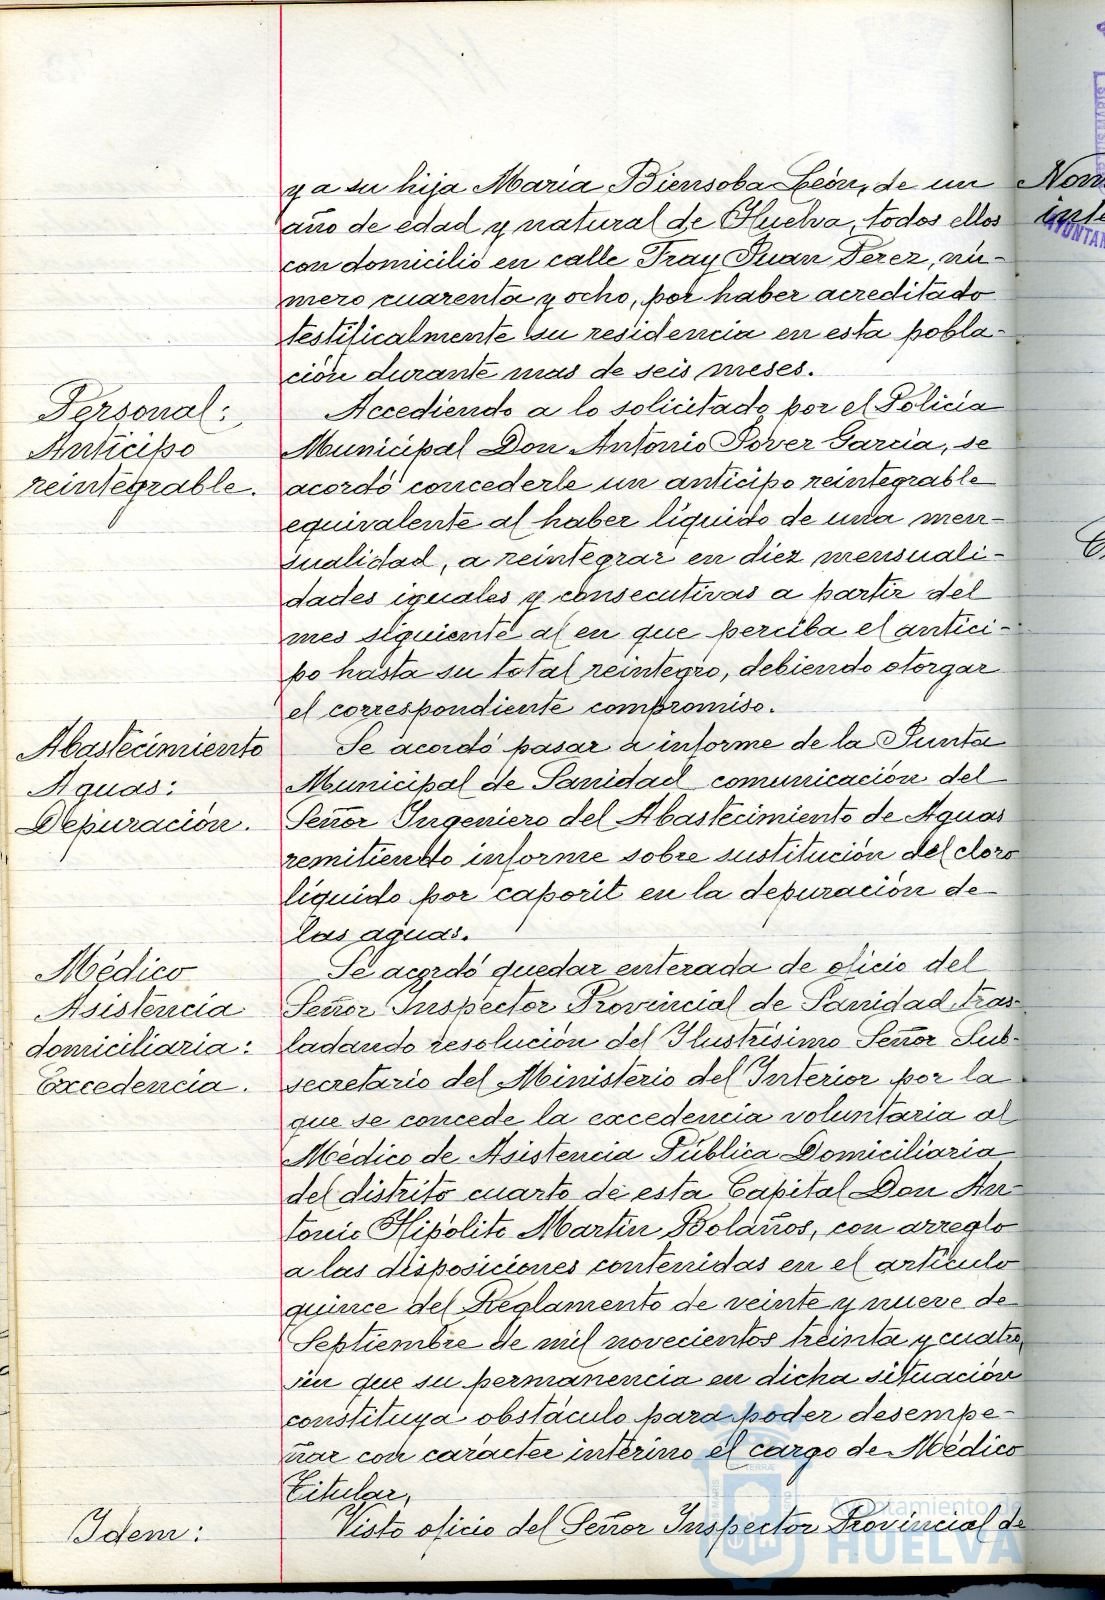 y a su hija María Biensoba León, de un
año de edad y natural de Huelva, todos ellos
con domicilio en calle Fray Juan Perez, nú-
mero cuarenta y ocho, por haber acreditado
testificalmente su residencia en esta pobla-
ción durante mas de seis meses.
Personal:
Anticipo
reintegrable.
Accediendo a lo solicitado por el Policía
Municipal Don Antonio Pover García, se
acordó concederle un anticipo reintegrable
equivalente al haber líquido de una men-
sualidad, a reintegrar en diez mensuali-
dades iguales y consecutivas a partir del
mes siguiente al en que perciba el antici-
po hasta su total reintegro, debiendo otorgar
el correspondiente compromiso.
Abastecimiento
Aguas:
Depuración.
Se acordó pasar a informe de la Junta
Municipal de Sanidad comunicación del
Señor Ingeniero del Abastecimiento de Aguas
remitiendo informe sobre sustitución del cloro
líquido por caporit en la depuración de
las aguas.
Médico
Asistencia
domiciliaria:
Excedencia.
Se acordó quedar enterada de oficio del
Señor Inspector Provincial de Sanidad tras-
ladando resolución del Ilustrísimo Señor Sub-
secretario del Ministerio del Interior por la
que se concede la excedencia voluntaria al
Médico de Asistencia Pública Domiciliaria
del distrito cuarto de esta Capital Don An-
tonio Hipólito Martín Bolaños, con arreglo
a las disposiciones contenidas en el artículo
quince del Reglamento de veinte y nueve de
Septiembre de mil novecientos treinta y cuatro,
sin que su permanencia en dicha situación
constituya obstáculo para poder desempe-
ñar con carácter interino el cargo de Médico
Titular,
Idem:
Visto oficio del Señor Inspector Provincial de
Ayuntamiento de
HUELVA